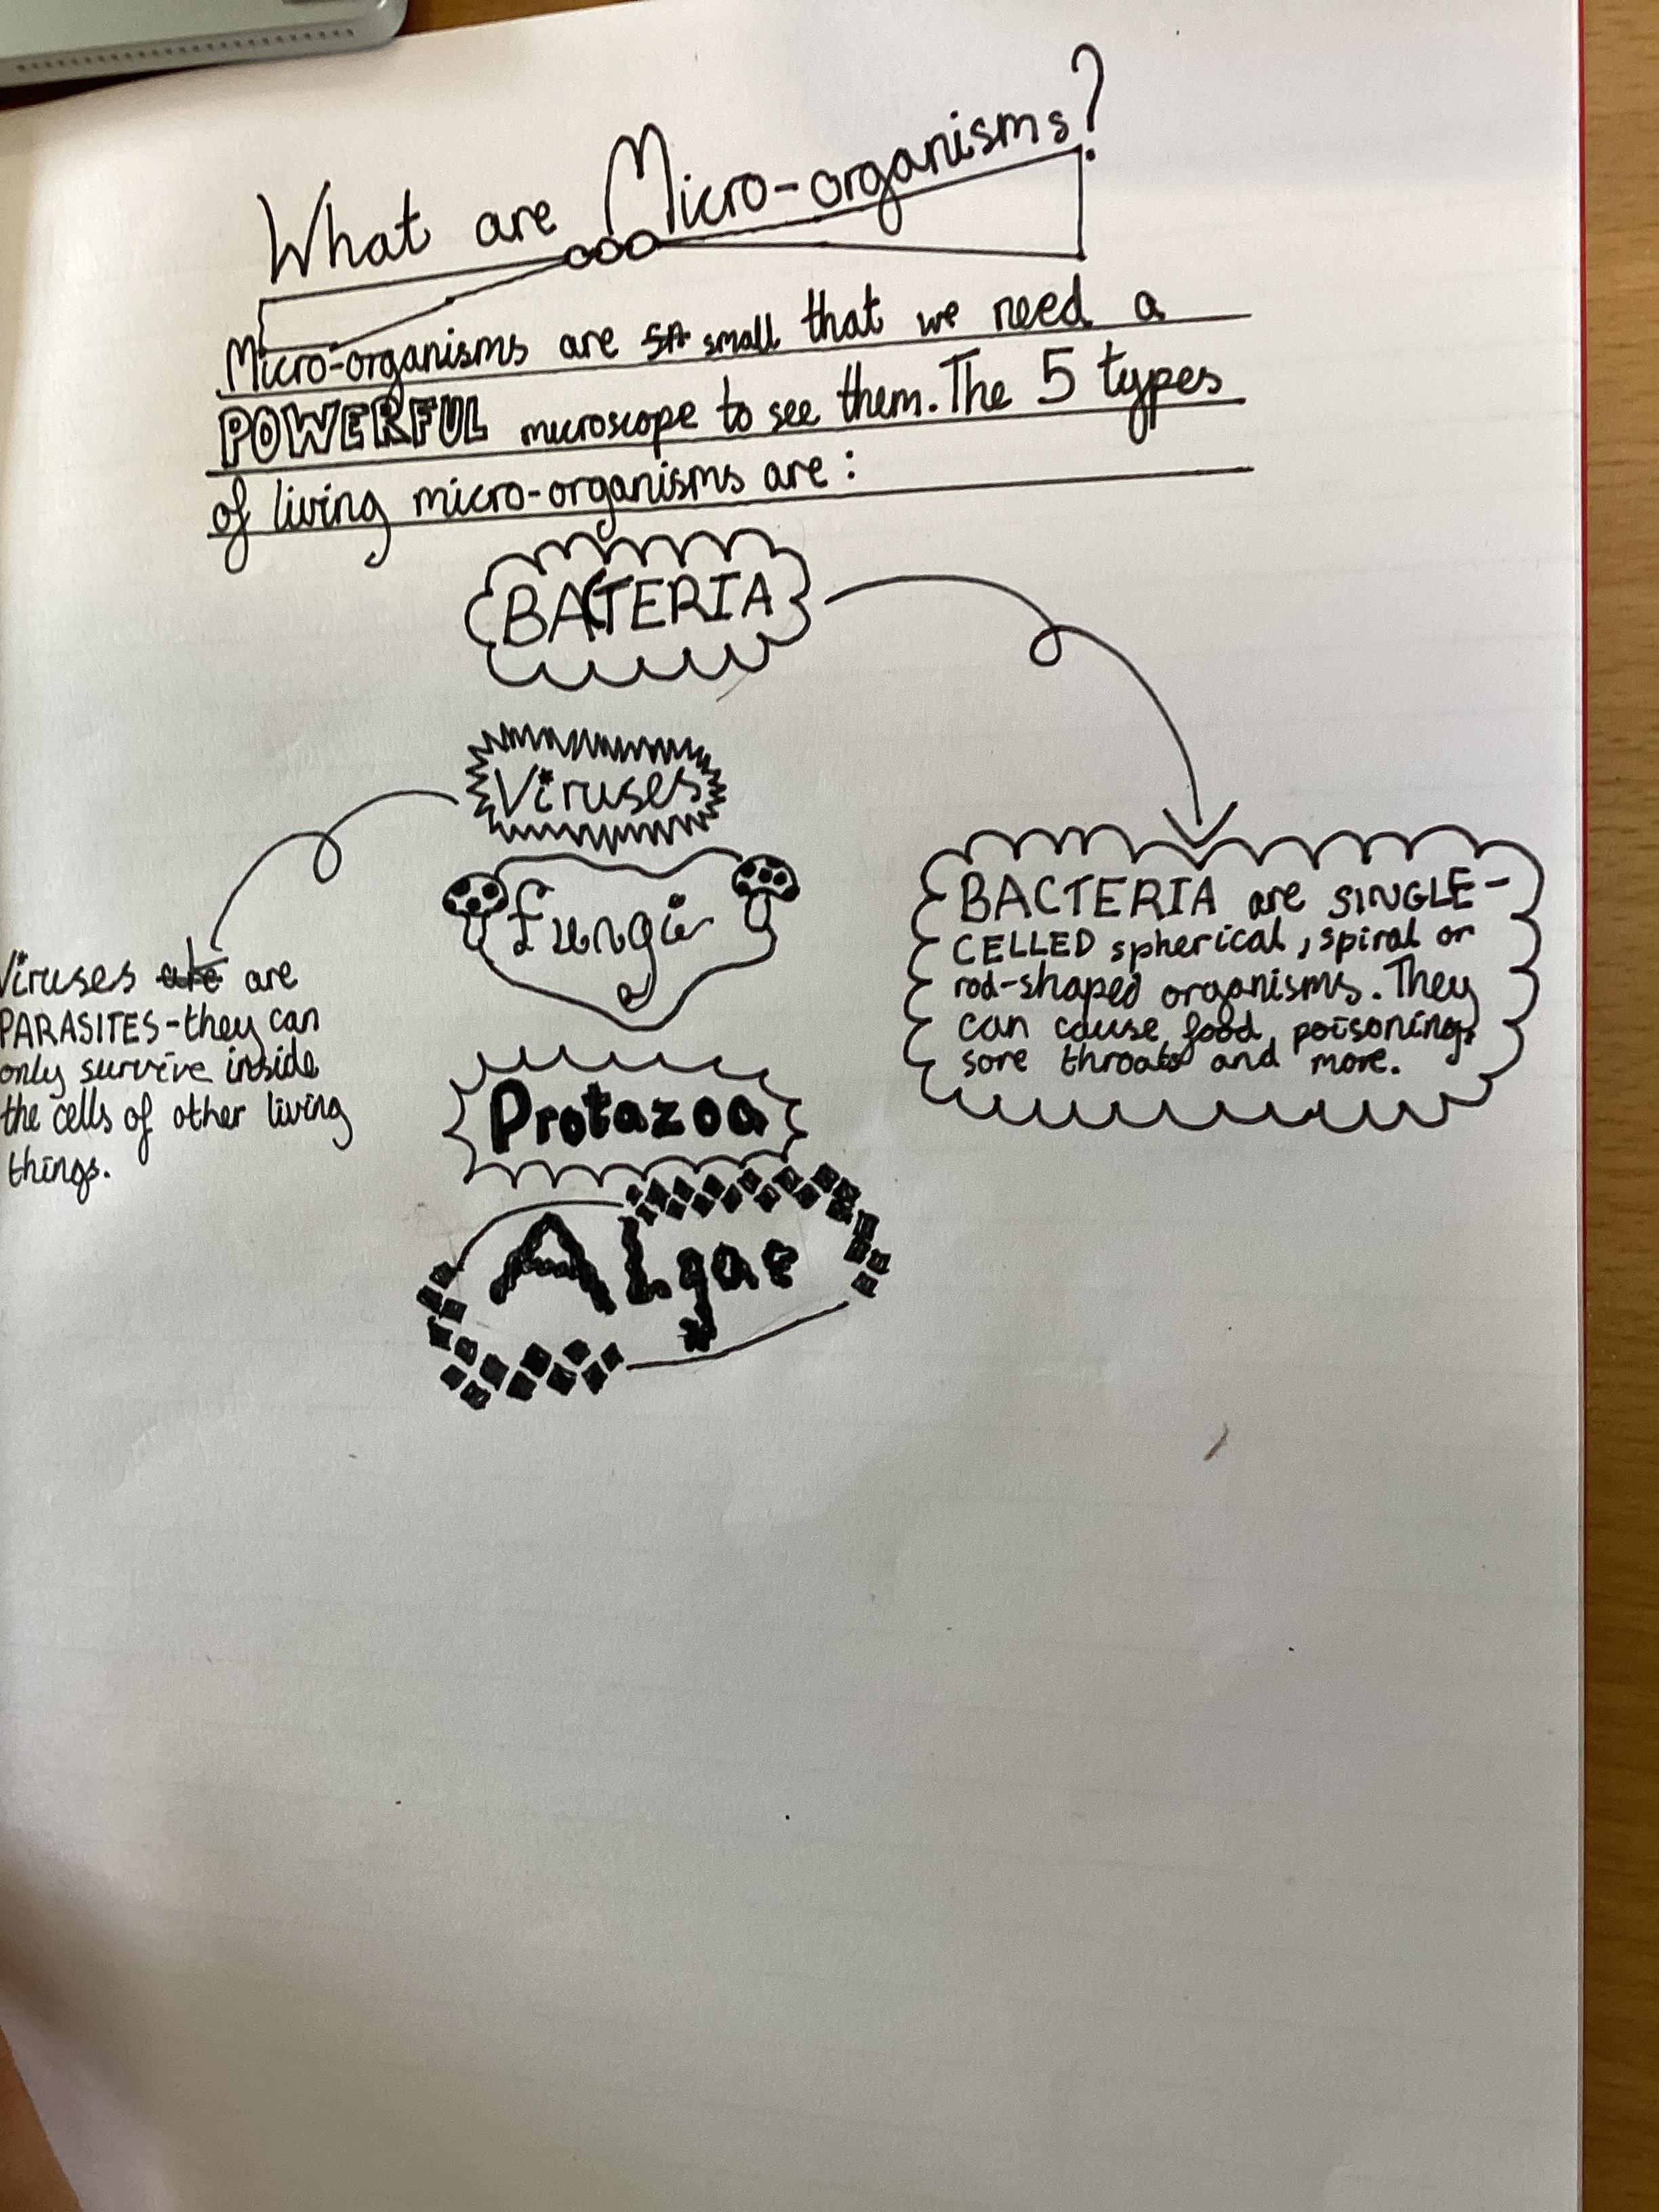 What are Micro-organisms?
Micro-organisms are small that we need a
POWERFUL microscope to see them. The 5 types
of living micro-organisms are:
BACTERIA
Viruses
fungi
Protazoa
ALgae
BACTERIA are SINGLE-
CELLED spherical, spiral or
rod-shaped organisms. They
can cause food poisoning,
sore throats and more.
Viruses are are
PARASITES - they can
only survive inside
the cells of other living
things.